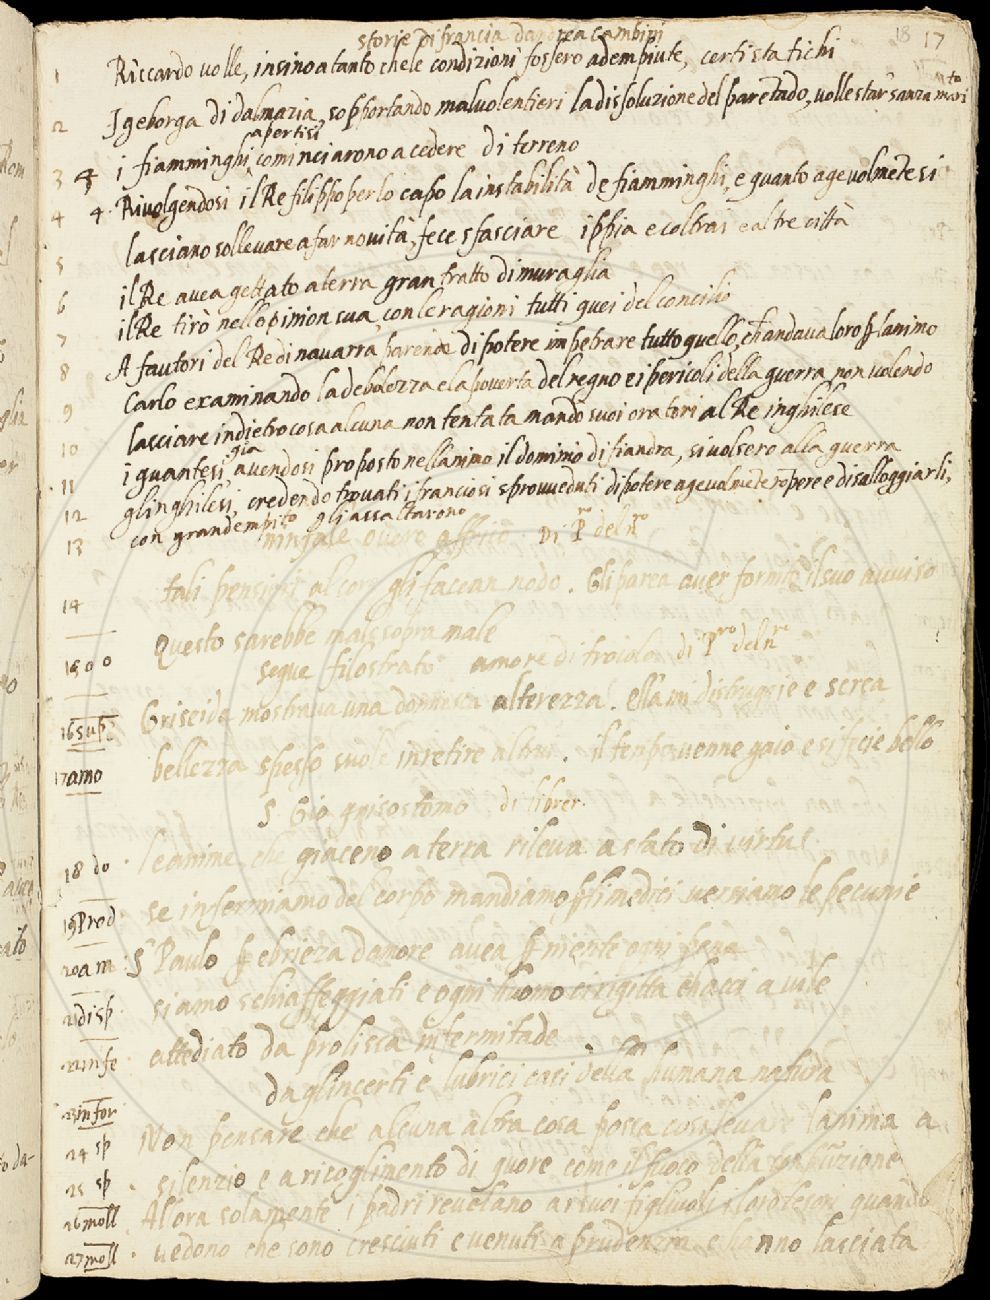 storie di francia d'Andrea Cambini
18 17
1 Riccardo volle, insino a tanto che le condizioni fossero adempiute, certi statichi
2 Igeborga di dalmazia, sopportando malvolentieri la dissoluzione del parentado, volle star sanza mari
apertisi
3 i fiamminghi cominciarono a cedere di terreno
4 4 · Rivolgendosi il Re filippo per lo capo la instabilità de fiamminghi, e quanto agevolmēte si
lasciano sollevare a far novità, fece sfasciare ippia e coltrai e altre città
5 il Re avea gettato a terra gran tratto di muraglia
6 il Re tirò nell opinion sua con le ragioni tutti quei del concilio
7 A fautori del Re di navarra parendo di potere impetrare tutto quello, ch andava loro p lanimo
8 Carlo examinando la debolezza e la poverta del regno e i pericoli della guerra non volendo
9 lasciare indietro cosa alcuna non tentata mandò suoi oratori al Re inghilese
già
10 i guantesi avendosi proposto nell animo il dominio di fiandra, si volsero alla guerra
11 gl inghilesi, credendo trovati i franciosi sprovveduti di potere agevolmēte rōpere e disalloggiarli,
12 con grand empito gli assaltarono
13 ninfale overo Di
14 tali pensieri al core gli faccan nodo. Gli parea aver fornito il suo avviso
15 Questo sarebbe male sopra male
segue filostrato amore di troiolo di
16 Griseida mostrava una donnesca alterezza. Ella mi distruggie e
17 amo bellezza spesso suole inretire altrui. il tenpo venne gaio e si fecie bello
S. Gio grisostomo di
18 le anime, che giaceno a terra rileva a stato di virtu
19 Prod se infermiamo del corpo mandiamo pli medici versiamo le pecunie
20 am · S Paulo p ebrieza d amore avea p niente ogni pena
21 disp siamo schiaffeggiati e ogni huomo ci rigitta e hacci a vile
22 infe attediato da prolissa infermitade
23 infor da gl incerti e lubrici casi della humana natura
24 sp Non pensare che alcuna altra cosa possa lanima a
25 sp · silenzio e a ricoglimento di quore come il fuoco della
26 moll · Allora solamente i padri revelano a i suoi figliuoli i loro tesori quando
27 moll · vedono che sono cresciuti e venuti a prudenzia e hanno lasciata